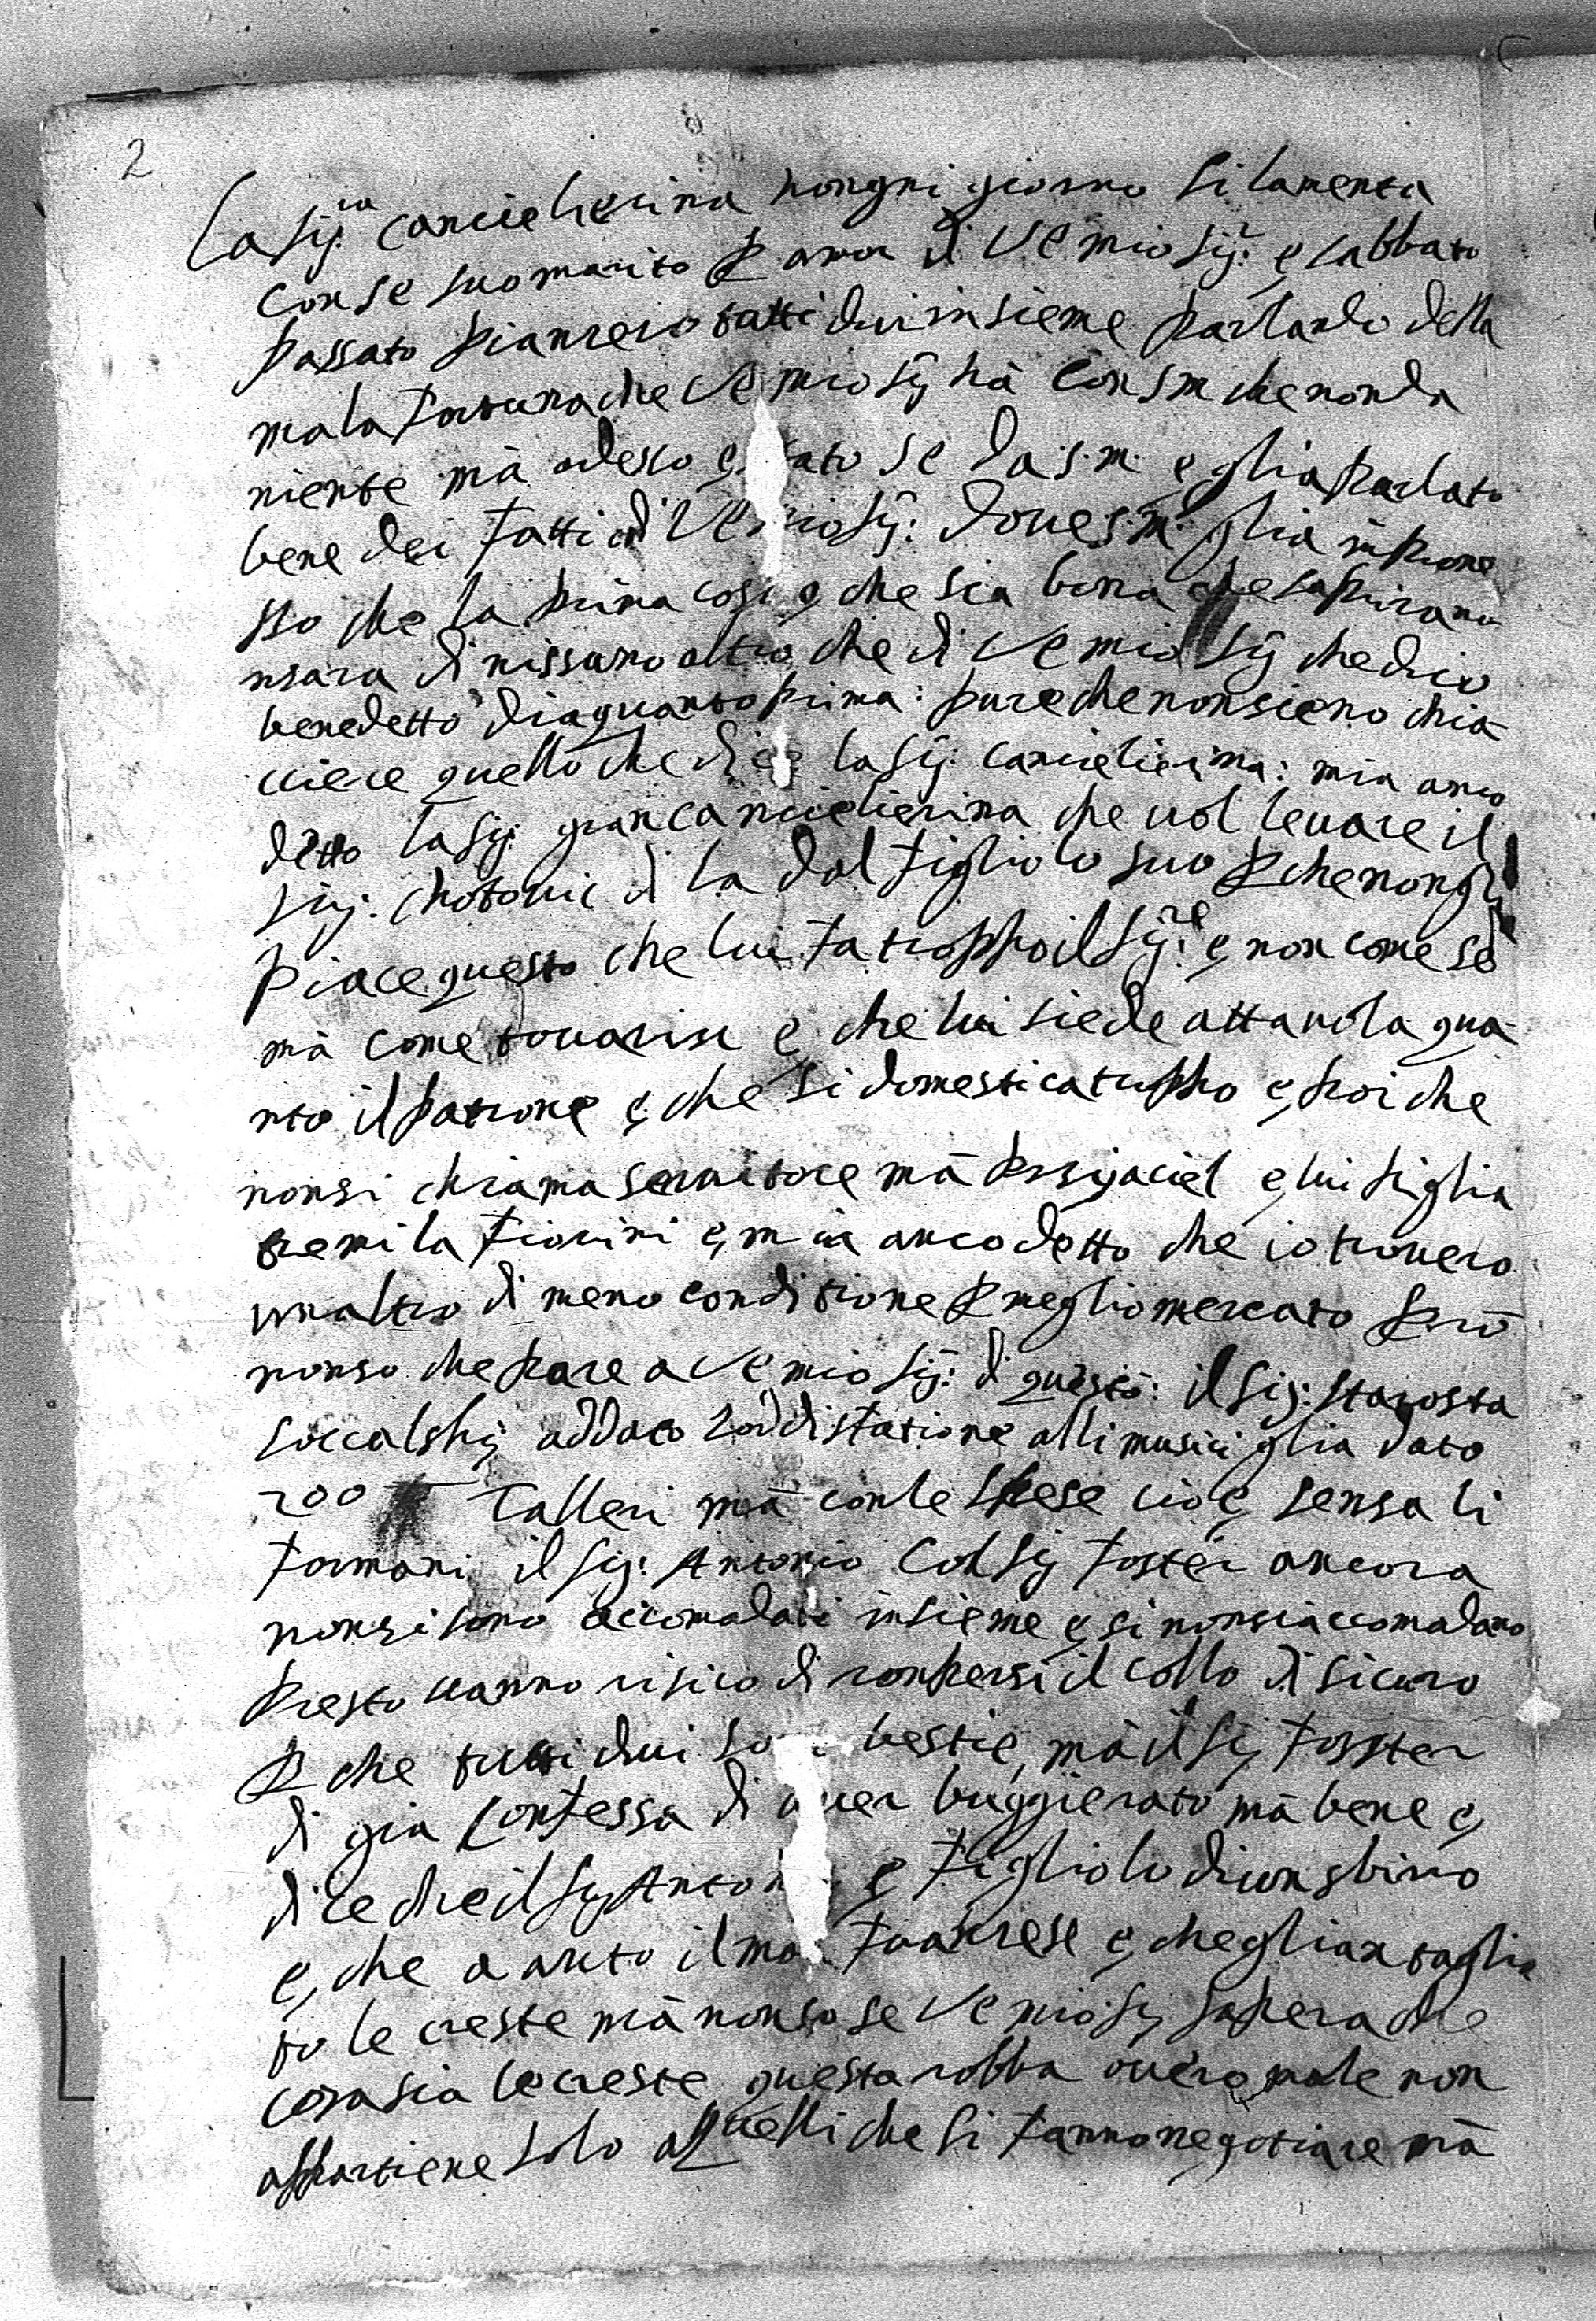 2
La Sig.ra cancielierina hongni giorno si lamenta
con se suo marito p amor di Ve mio Sig.r e sabbato
passato pianseró tutti dui insieme parlando della
mala fortuna che Ve mio Sig hà con S m che non da
niente mà adesso e stato se da S. m. e gli a parlato
bene dei fatti di Ve mio Sig: dove S. m. gli a inprome
sso che la prima cosa che sia bona che sapirano
nsara di nissuno altro che di Ve mio Sig che dio
benedetto dia quanto prima: pure che non sieno chia
cciere quello che dice la Sig: cancielierina: mia anco
detto la Sig: gran cancielierina che vol levare il
Sig: chotovic di la dal figliolo suo p che non gli
piace questo che lui fa troppo il Sig.re e non come se
mà come tovarisc e che lui siede attavola qua
nto il patrone e che si domestica truppo e poi che
non si chiama servitore mà pssijaciel e lui piglia
tremila fiorini e m ia anco detto che io trovero
un altro di meno conditione p meglio mercato però
non so che pare a Ve mio Sig: di questo: il Sig: starosta
soccalshij addato soddisfatione alli musici gli a dato
200 Talleri mà con le spese cioe sensa li
formani il Sig: Antonio Col Sig foster ancora
non si sono accomadati insieme e si non si accomadano
presto vanno risico di ronpersi il collo di sicuro
p che tutti dui so bestie, mà il Sig fosster
di gia confessa di aver buggierato mà bene e
dice che il Sig Anto e figliolo di un sbirro
e, che a auto il mal francese e che gli an taglia
to le creste mà non so se Ve mio Sig sapera che
cosa sia le creste questa robba overo male non
appartiene solo a quelli che si fanno negotiare mà